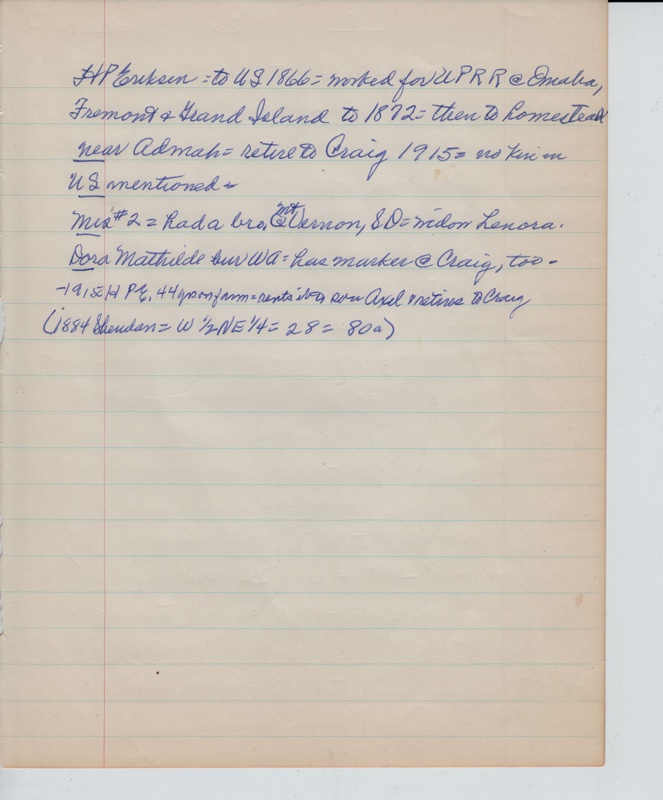 HP Eriksen = to US 1866 = worked for UPRR @ Omaha,
Fremont & Grand Island to 1872 = then to homestead
near Admah = retire to Craig 1915 = no kin in
US mentioned =
Mrs #2 = had a bro. @ Mt Vernon, SD = widow Lenora.
Dora Mathilde bur WA = has marker @ Craig, too -
-1915 H PE, 44 yrs on farm = rents it to son Axel & retires to Craig
(1884 Sheridan = W 1/2 NE 1/4 = 28 = 80a)